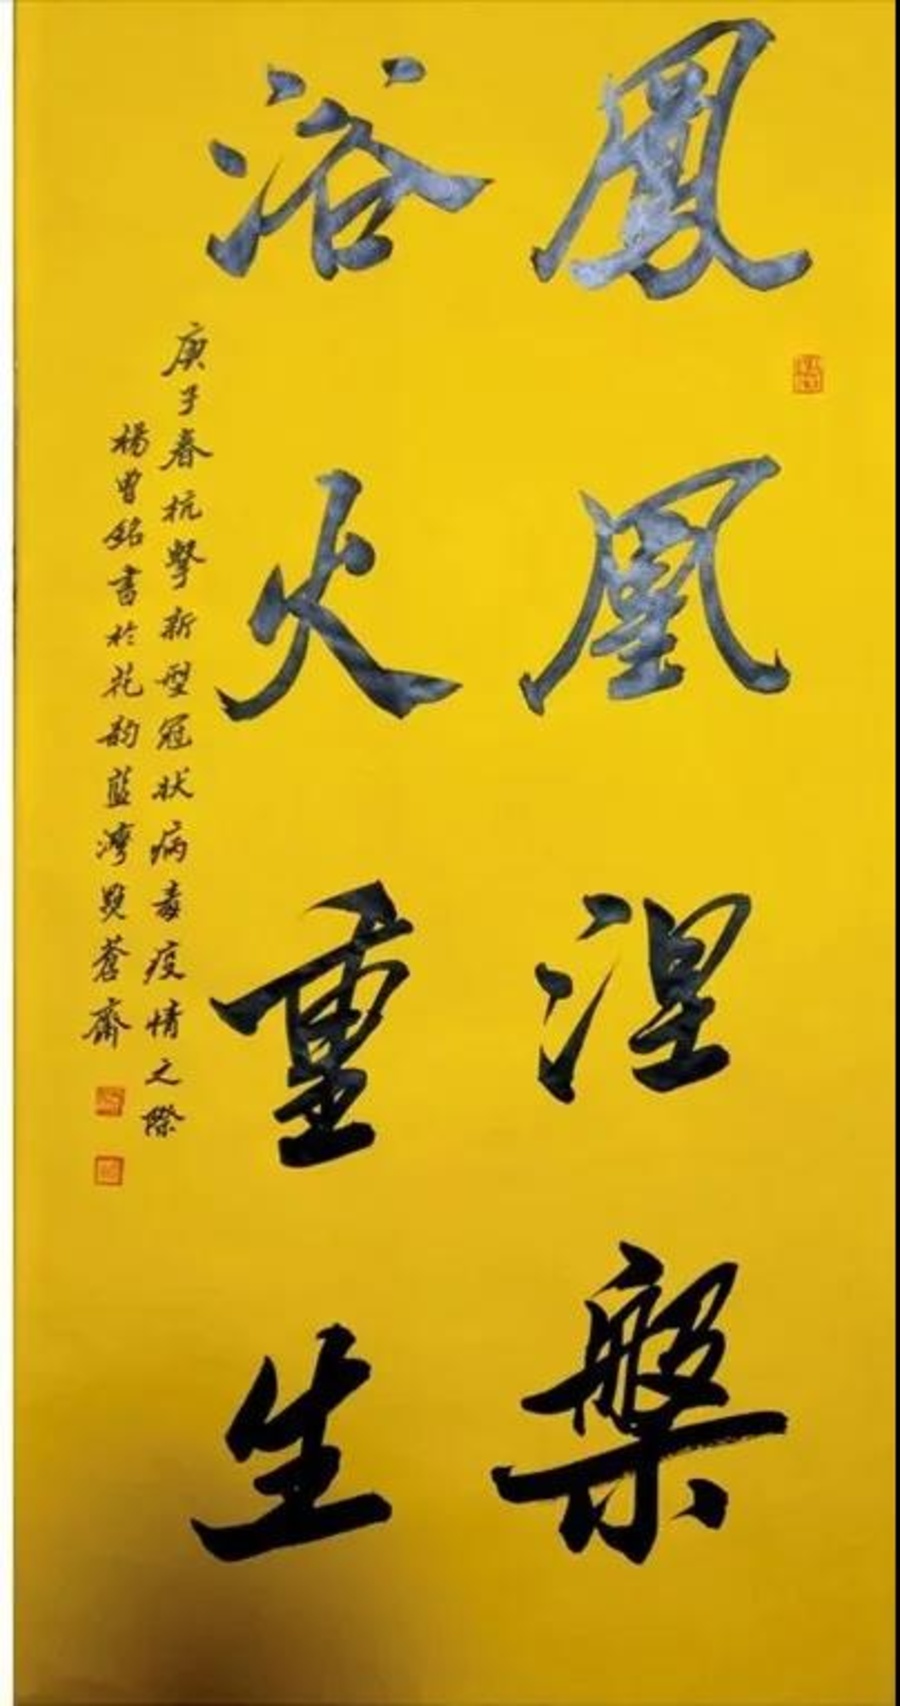 鳳凰涅槃
浴火重生
庚子春抗擊新型冠狀病毒疫情之際
楊曾銘書於花韵藍灣㸃蒼齋